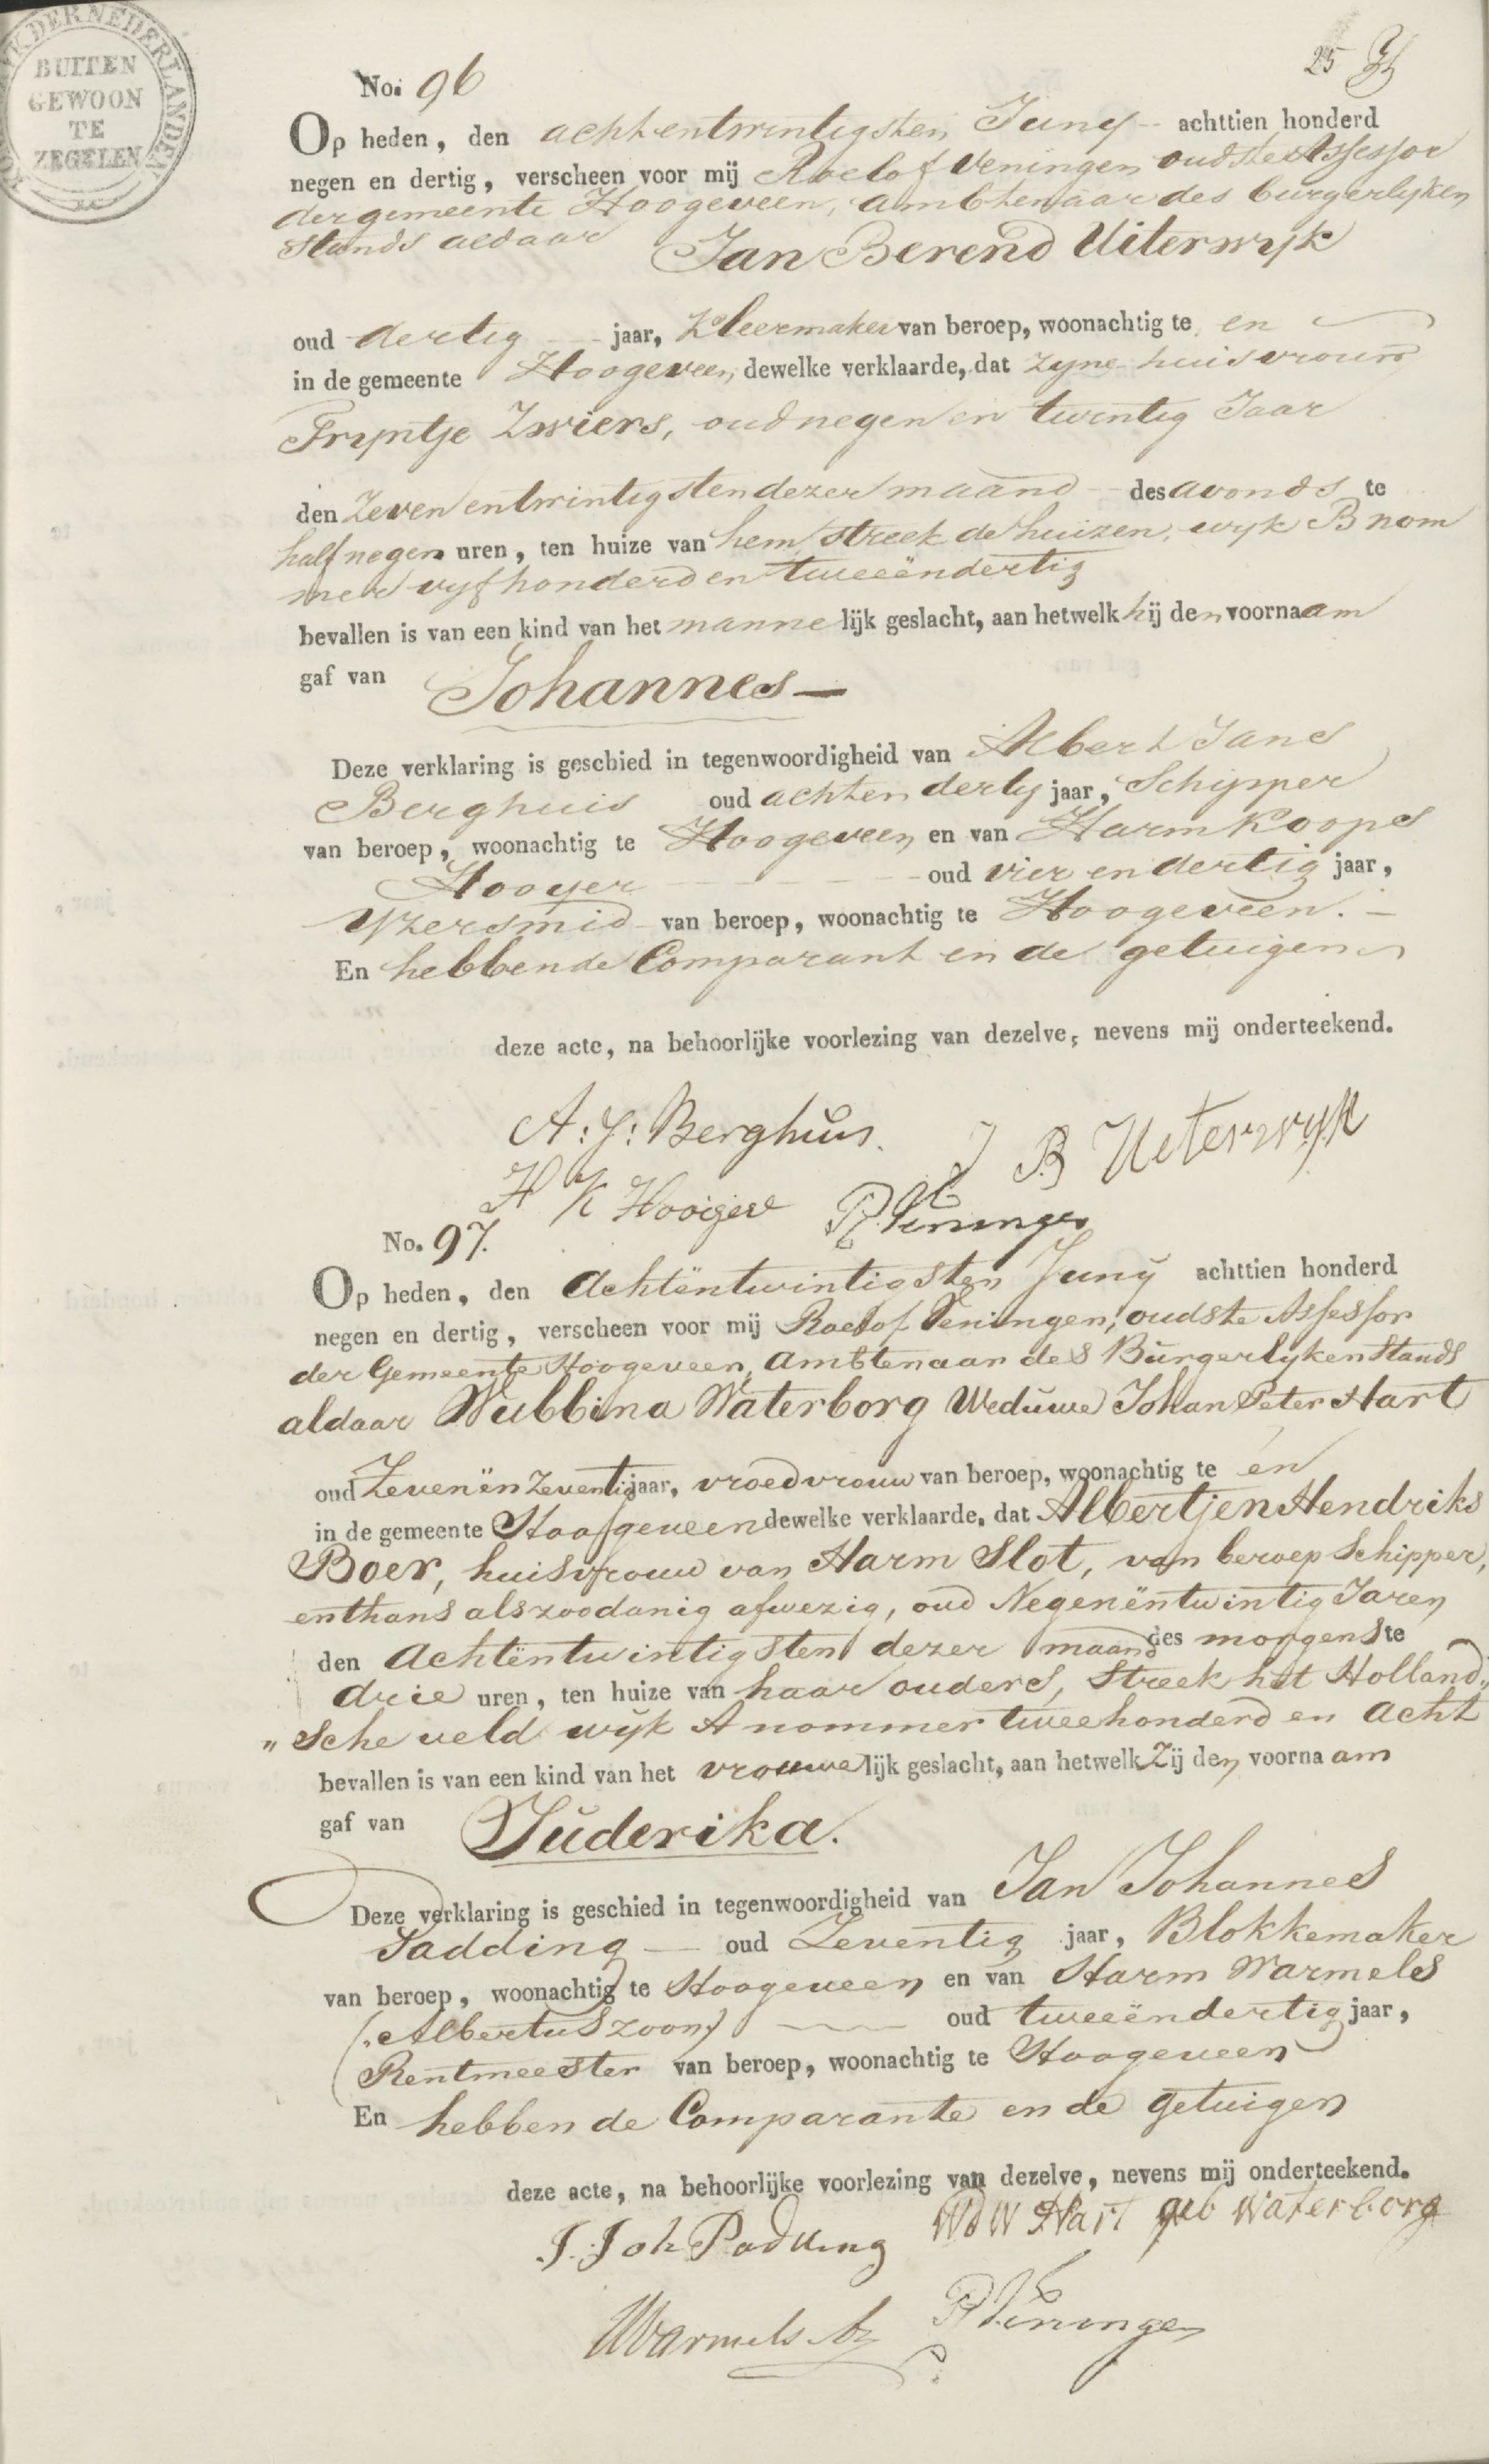 KONINGRIJK DER NEDERLANDEN
BUITEN
GEWOON
TE
ZEGELEN
25
No. 96
Op heden, den achtentwintigsten Juny achttien honderd
negen en dertig, verscheen voor mij Roelof Veningen oudste Assessor
der gemeente Hoogeveen, ambtenaar des burgerlyken
stands aldaar Jan Berend Uiterwyk
oud dertig jaar, Kleermaker van beroep, woonachtig te en
in de gemeente Hoogeveen, dewelke verklaarde, dat zyne huisvrouw
Tryntje Zwiers, oud negen en twintig Jaar
den Zeven entwintigsten dezer maand des avonds te
half negen uren, ten huize van hem, streek de huizen, wyk B nom
mer vyf honderd en tweeëndertig
bevallen is van een kind van het mannelijk geslacht, aan hetwelk hij den voornaam
gaf van Johannes
Deze verklaring is geschied in tegenwoordigheid van Albert Jans
Berghuis oud achtendertig jaar, Schipper
van beroep, woonachtig te Hoogeveen en van Harm Koops
Hooyer oud vier en dertig jaar,
Yzersmid van beroep, woonachtig te Hoogeveen.
En hebbende Comparant en de getuigen
deze acte, na behoorlijke voorlezing van dezelve, nevens mij onderteekend.
A: J: Berghuis. J B Uiterwyk
H K Hooijer R Veningen
No. 97.
Op heden, den Achtëntwintigsten Junij achttien honderd
negen en dertig, verscheen voor mij Roelof Veningen, oudste Assessor
der Gemeente Hoogeveen, Ambtenaar des Burgerlyken Stands
aldaar Wubbina Waterborg Weduwe Johan Peter Hart
oud Zevenën Zeventig jaar, vroedvrouw van beroep, woonachtig te en
in de gemeente Hoogeveen dewelke verklaarde, dat Albertjen Hendriks
Boer, huisvrouw van Harm Slot, van beroep Schipper,
enthans als zoodanig afwezig, oud Negenëntwintig Jaren
den Achtëntwintigsten dezer maand des morgens te
drie uren, ten huize van haar ouders, Streek het Holland„
„sche veld wijk A nommer tweehonderd en Acht
bevallen is van een kind van het vrouwelijk geslacht, aan hetwelk Zij den voornaam
gaf van Juderika.
Deze verklaring is geschied in tegenwoordigheid van Jan Johannes
Padding oud Zeventig jaar, Blokkemaker
van beroep, woonachtig te Hoogeveen en van Harm Warmels
(Albertus zoon) oud tweeëndertig jaar,
Rentmeester van beroep, woonachtig te Hoogeveen
En hebben de Comparante en de getuigen
deze acte, na behoorlijke voorlezing van dezelve, nevens mij onderteekend.
J. Joh Padding Wd W Hart geb Waterborg
Warmels Az R Veningen